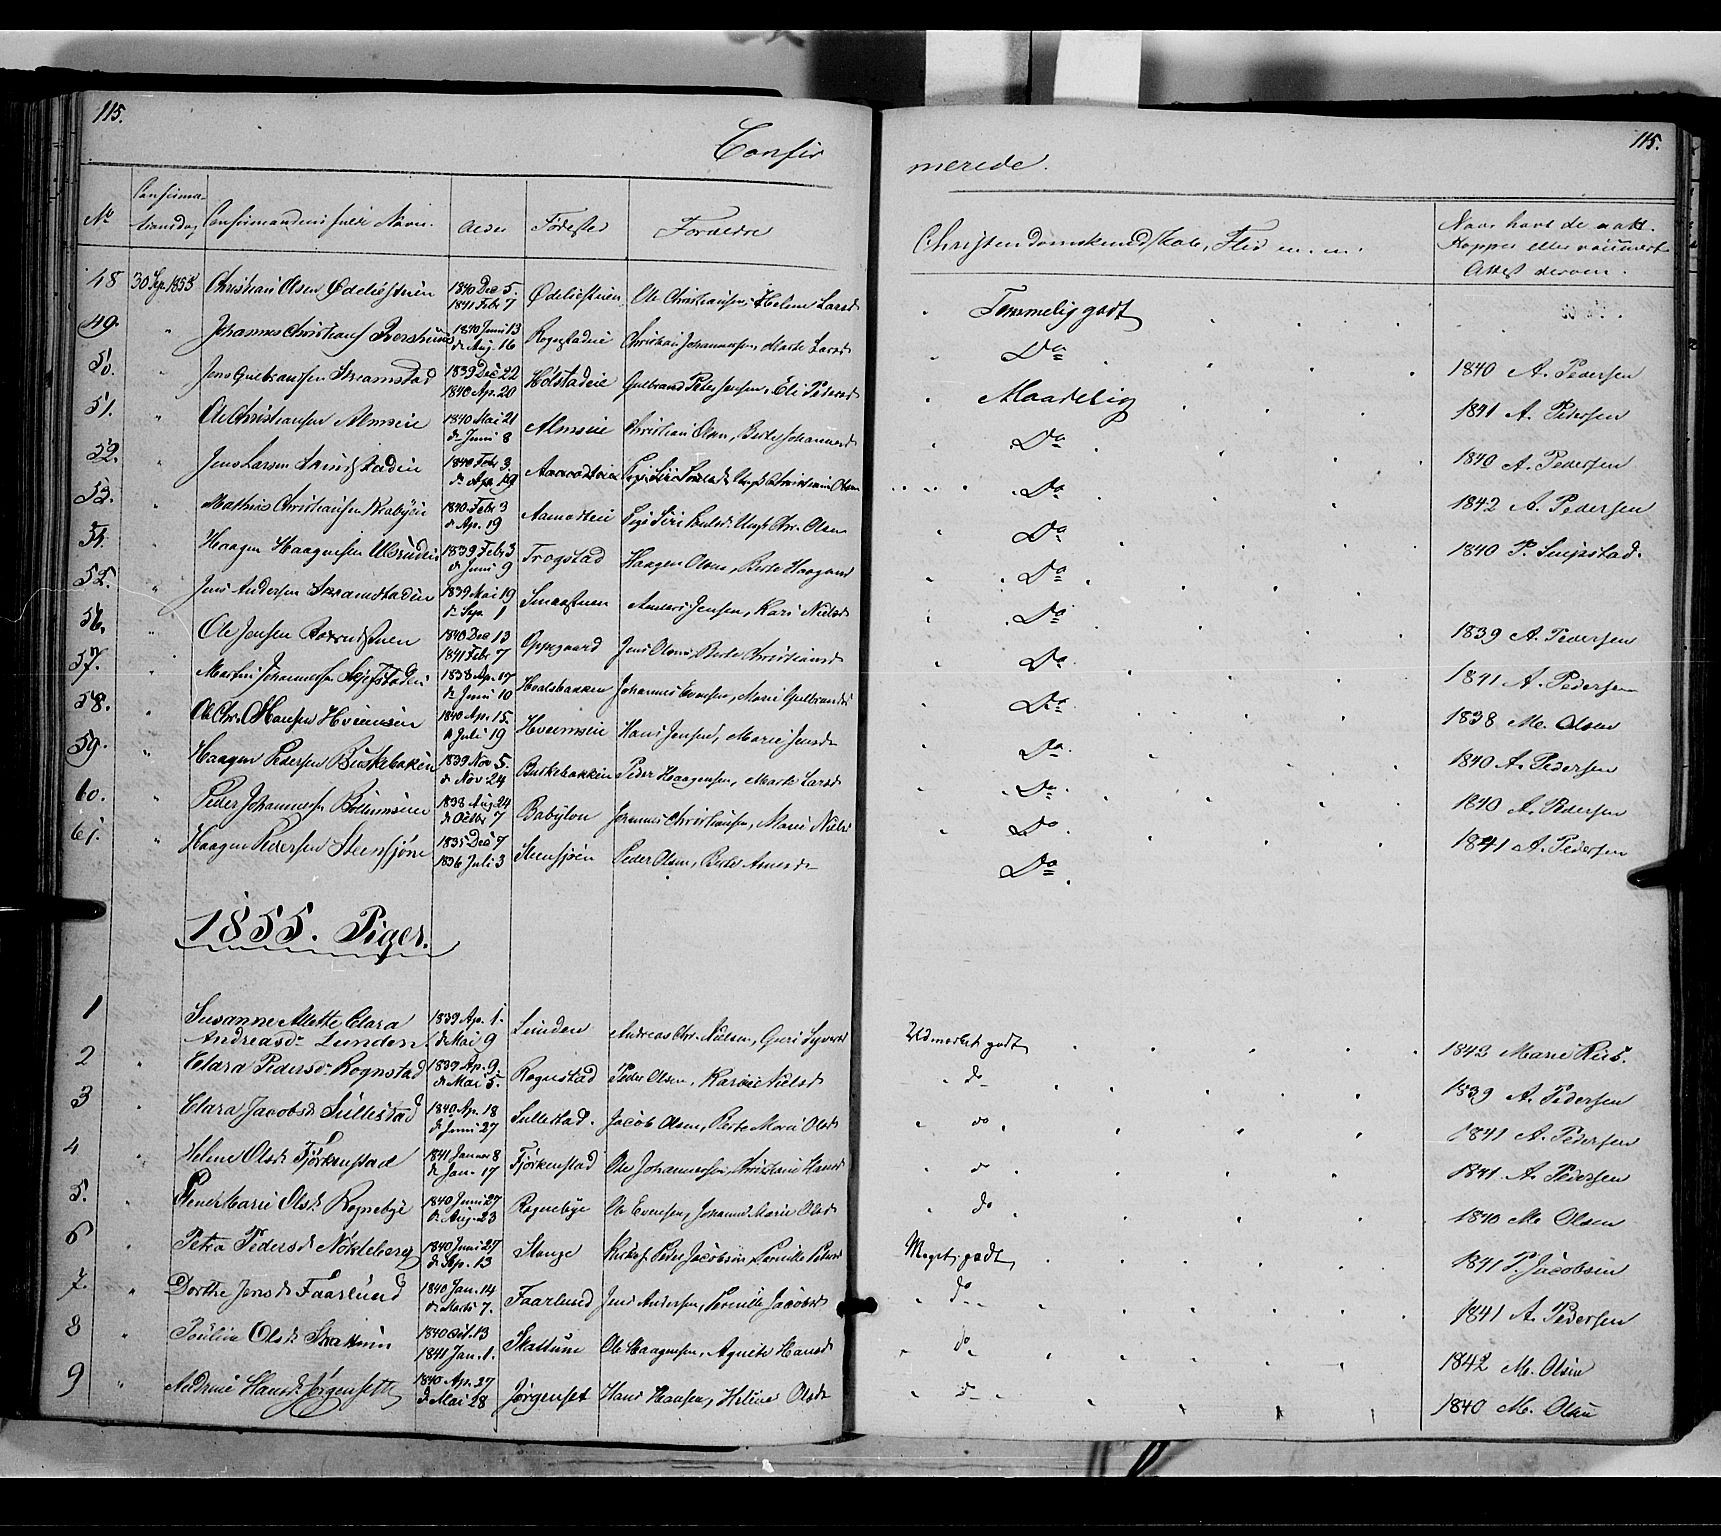 115.
115.
Confir
merede.
No
Confirma-
tionsdag
Confirmandens fulde Navn.
Alder
Fødested
Forældre
Christendomskundskab, Flid m. m.
Naar havt de natl.
Kopper eller vaccineret
Attest derom.
48 30 Sep. 1855 Christian Olsen Ødeliestuen 1840 Dec 5. 1841 Febr 7 Ødeliestuen Ole Christiansen, Helene Larsd Temmelig godt
49. " Johannes Christians 1840 Juni 13 d Aug. 16 Rognstadeie Christian Johannesen, Marte Larsd Do 1840 A. Pedersen
50. " Jens Gulbrandsen Skramstad 1839 Dec 22 1840 Ap. 20 Holstadeie Gulbrand Jensen, Eli Pedersd Maadelig 1841 A. Pedersen
51. " Ole Christiansen Almseie 1840 Mai 21 d Juni 8 Almseie Christian Olsen, Berte Johannesd Do 1840 A. Pedersen
52. " Jens Larsen 1840 Febr 3. d Apr. 19 Do 1842 A. Pedersen
53. " Mathias Christiansen 1840 Febr 3 d Ap. 19 Aamodteie Pige Siri Ungk Chr. Olsen Do 1840 P. Snipstad.
54. " Haagen Haagensen Ulsrudeie 1839 Febr 3 d Juni 9 Trogstad Haagen Olsen, Berte Haagensd Do
55. " Jens Andersen Skramstadeie 1839 Mai 19 d Sep. 1 Smaastuen Anders Jensen, Kari Nielsd Do 1839 A. Pedersen
56. " Ole Jensen 1840 Dec 13 1841 Febr 7 Oppegaard Jens Olsen, Berte Christiansd Do 1841 A. Pedersen
57. " Martin Johannesen 1838 Ap. 17 d Juni 10 Hvalsbakken Johannes Evensen, Marie Gulbrandsd Do 1838 M. Olsen
58. " Ole Chr. Hansen Hveemseie 1840 Apr. 15. d Juli 19 Hveemseie Hans Jensen, Marie Jensd Do 1840 A. Pedersen
59. " Haagen Pedersen Birkebakken 1839 Nov 5. d Nov. 24 Birkebakken Peder Haagensen, Marte Larsd Do 1840 A. Pedersen
60. " Peder Johannesen 1838 Aug. 24 d Octbr 7 Babylon Johannes Christiansen, Marie Nielsd Do 1841 A. Pedersen
61. " Haagen Pedersen Steensjøen 1835 Dec 7 1836 Juli 3 Steensjøen Peder Olsen, Berte Arnesd Do
1855. Piger.
1 Susanne Alette Clara
Andreasd. Lunden. 1839 Ap. 1. d Mai 9 Lunden Andreas Chr. Nielsen, Guri Syversd Udmærket godt 1843 Marie Riis.
2 " Clara Pedersd. Rognstad 1839 Ap. 9 d Mai 5. Rognstad Peder Olsen, Karine Nielsd do 1839 A. Pedersen
3 " Clara Jacobsd. Sullestad 1840 Ap. 18 d Juni 27 Sullestad. Jacob Olsen, Berte Marie Olsd do 1841 A. Pedersen
4 " Helene Olsd. Fjørkenstad 1841 Januar 8 d Jan. 17 Fjørkenstad Ole Johannessen, Christine Hansd do 1841 A. Pedersen
5. " Marie Olsd. Rognebye 1840 Juni 27 d Aug. 23 Rognebye Ole Evensen, Johanne Marie Olsd do 1840 M. Olsen
6 " Petra Pedersd. Nøkleberg 1840 Juni 27 d Sep. 13 Stange Peder Jacobsen, Pernille Meget godt 1841 P. Jacobsen
7. " Dorthe Jensd. Faarlund 1840 Jan. 14 d Marts 7. Faarlund Jens Andersen, Pernille Jacobsd do 1841 A. Pedersen
8 " Pouline Olsd. Skattum 1840 Oct. 13 1841 Jan. 1. Skattum Ole Haagensen, Agnete Hansd do 1842 M. Olsen
9 " Andrine Hansd. Jørgensett 1840 Ap. 27 d Mai 28 Jørgenset Hans Hansen, Helene Olsd do 1840 M. Olsen